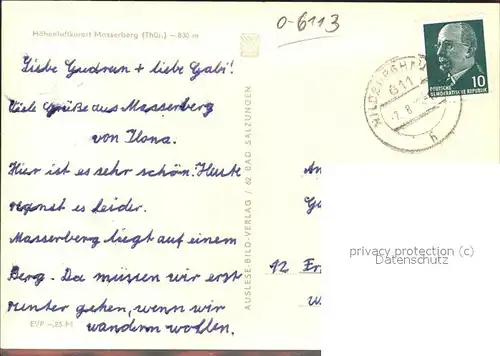 O-6113
Höhenluftkurort Masserberg (Thür.) – 830 m
Liebe Gudrun + liebe Gabi!
Viele Grüße aus Masserberg
von Ilona.
Hier ist es sehr schön. Heute
regnet es leider.
Masserberg liegt auf einem
Berg. Da müssen wir erst
runter gehen, wenn wir
wandern wollen.
EVP –,25 M
AUSLESE-BILD-VERLAG / 62 BAD SALZUNGEN
611
h
10
DEUTSCHE
DEMOKRATISCHE REPUBLIK
An
12
privacy protection (c)
Datenschutz